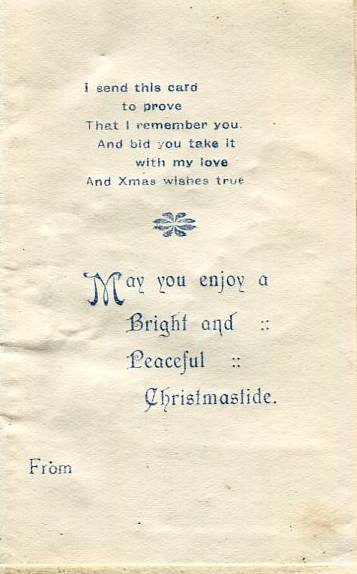 I send this card
to prove
That I remember you.
And bid you take it
with my love
And Xmas wishes true
May you enjoy a
Bright and ::
Peaceful ::
Christmastide.
From